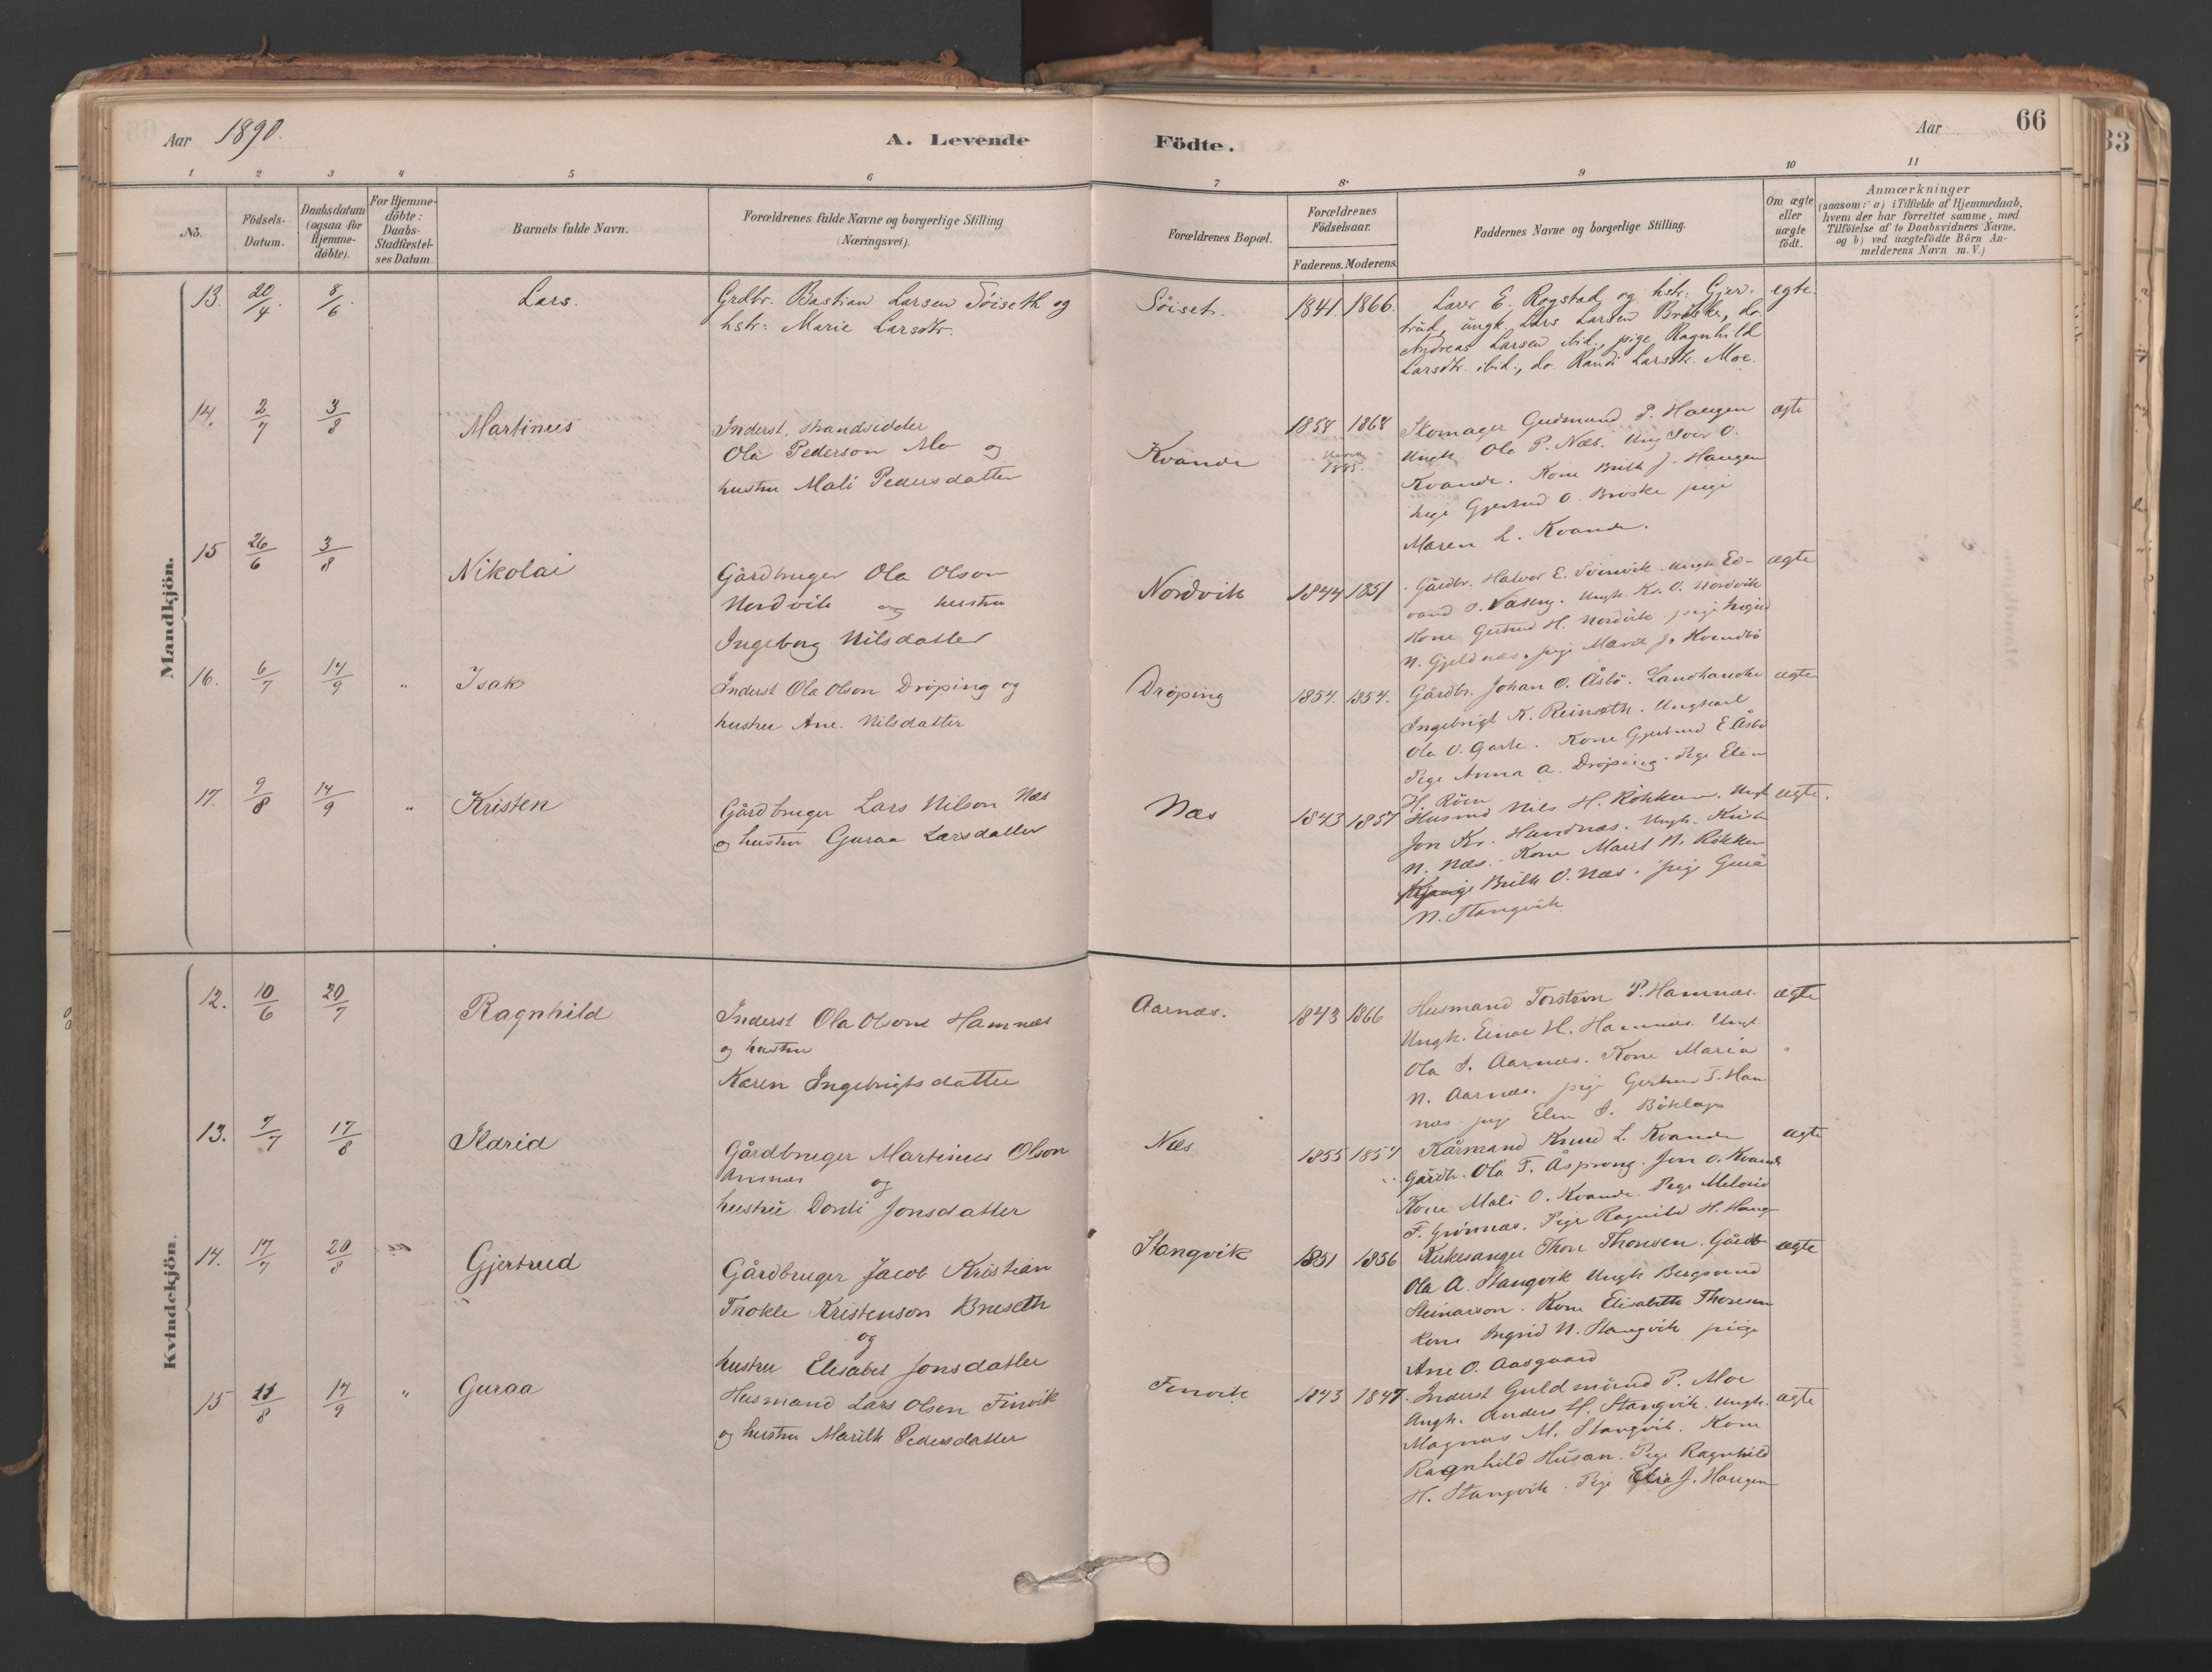 Aar 1890.
A. Levende
Födte.
Aar
66
33
1 2 3 4 5 6 7 8 9 10 11
No.
Födsels-
Datum.
Daabsdatum
(ogsaa for
Hjemme-
döbte).
For Hjemme-
döbte:
Daabs-
Stadfæstel-
ses Datum.
Barnets fulde Navn.
Forældrenes fulde Navne og borgerlige Stilling
(Næringsvei).
Forældrenes Bopæl.
Forældrenes
Födselsaar.
Faderens. Moderens.
Faddernes Navne og borgerlige Stilling.
Om ægte
eller
uægte
födt.
Anmærkninger
(saasom: a) i Tilfælde af Hjemmedaab,
hvem der har forrettet samme, med
Tilföielse af to Daabsvidners Navne,
og b) ved uægtefödte Börn An-
melderens Navn m. V.)
Mandkjön.
13. 20/4. 8/6. Lars.
Grdbr. Bastian Larsen Söiseth og
hstr: Marie Larsdtr.
Söiset. 1841 1866.
Lærer E. Rogstad og hstr: Gjer-
trud, ungk. Lars Larsen Bröske, do.
Andreas Larsen ibid., pige Ragnhild
Larsdtr. ibid., do. Randi Larsdtr. Moe.
egte.
14. 2/7 3/8 Martinus
Inderst. strandsidder
Ola Pederson Mo og
hustru Mali Pedersdatter
Kvande 1858 1868
1885.
Skomager Gudmund P. Haugen
Ungk. Ola P. Næs. Ung Iver O.
Kvande. Kone Brith J. Haugen
pige Gjertrud O. Bröske pige
Maren L. Kvande.
ægte
15 26/6 3/8 Nikolai
Gårdbruger Ola Olson
Nordvik og hustru
Ingeborg Nilsdatter
Nordvik 1844 1851
Gårdbr. Halvor E. Svinvik. Ungk. Ed-
vard Ungk. Kr. O. Nordvik
Kone Gertrud H. Nordvik pige Ingrid
N. Gjeldnæs, pige Marit J. Kvendbö
ægte
16. 6/7 14/9 " Isak
Inderst Ola Olson Dröping og
hustru Ane. Nilsdatter
Dröping 1854. 1854.
Gårdbr. Johan O. Åsbö. Landhandler
Ingebrigt K. Reinseth. Ungkarl
Ola O. Garte. Kone Gjertrud E. Åsbö
Pige Anna A. Dröping. Pige Elen
H. Röen
ægte
17. 9/8 14/9 " Kristen
Gårdbruger Lars Nilson Næs
og hustru Guraa Larsdatter
Næs 1843 1857
Husmd Nils H. Rökkum. Ungk
Jon Kr. Handnæs. Ungk. Krist
N. Næs. Kone Marit N. Rökkum
Brith O. Næs. pige Gurå
N. Stangvik
ægte.
Kvindekjön.
12. 10/6 20/7 Ragnhild
Inderst Ola Olsone Hamnæs
og hustru
Karen Ingebrigtsdatter
Aarnæs. 1843 1866
Husmand Torstein P. Hamnæs.
Ungk. Einar H. Hamnæs. Ungk.
Ola I. Aarnæs. Kone Maria
N. Aarnæs. pige Gertrud T. Ham
næs pige Elen I. Böklep
ægte
13. 7/7 17/8 Marid
Gårdbruger Martinus Olson
Arsnæs og
hustru Dordi Jonsdatter
Næs 1855 1857
Kårmand Knud L. Kvande
Gårdb. Ola T. Åsprong. Jon O. Kvande
Kone Mali O. Kvande. Pige Melosid
F. Grönnæs. Pige Ragnild H. Haug
ægte
14. 17/7 20/8 Gjertrud
Gårdbruger Jacob Kristian
Trokle Kristenson Bruseth
og
hustru Elisabet Jonsdatter
Stangvik 1851 1856
Kirkesanger Thore Thoresen. Gårdb
Ola A. Stangvik Ungk Bergsvend
Steinarson. Kone Elisabeth Thoresen
Kone Ingrid N. Stangvik pige
Ane O. Aasgaard
ægte
15 11/8 14/9 " Guraa
Husmand Lars Olsen Finvik
og hustru Marith Pedersdatter
Finvik 1843 1847.
Inderst Guldmund P. Moe
Ungk. Anders H. Stangvik. Ungk.
Magnus M. Stangvik. Kone
Ragnhild Husan. Pige Ragnhild
H. Stangvik. Pige J. Haugen
ægte